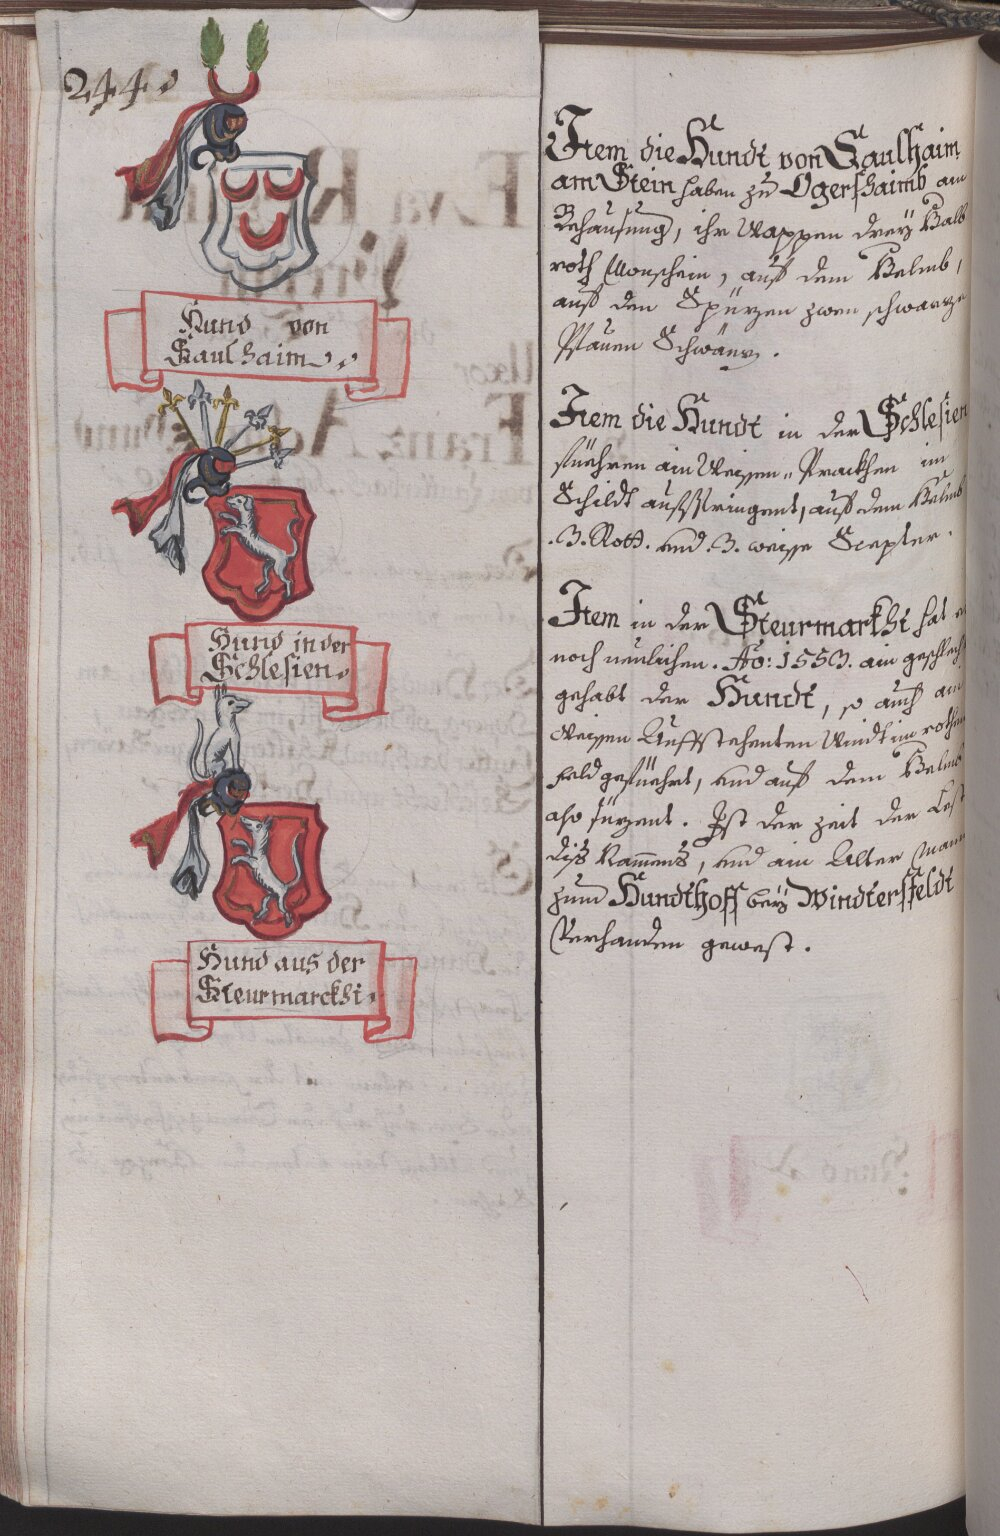 244.
Hund von
Saulhaim
Hund in der
Schlesien.
Hund aus der
Steurmarckhi.
Item die Hundt von Saulhaim
am Stein haben zu Ogershaimb am
Behausung, ihr Wappen dreÿ Halb
roth Monschein, auff dem Helmb,
auff den Spüzen zwen schwarze
Pfauen Schwänz.
Item die Hundt in der Schlesien
füehren ain Weissen Prackhen im
Schildt auffspringent, auff dem Helmb
.3. Roth. und .3. weisse Scepter.
Item in der Steurmarkhi hat es
noch neulichen. Ao: 1553. ain geschlecht
gehabt der Hundt, so auch ain
Weissen Auffstehenten Windt im rothen
Feld gefüehrt, und auff dem Helmb
also sizent. Ist der zeit der Lest
diss Nammens, und ain Alter Mann
zum Hundthoff beÿ Windtersfeldt
Verhanden gewest.